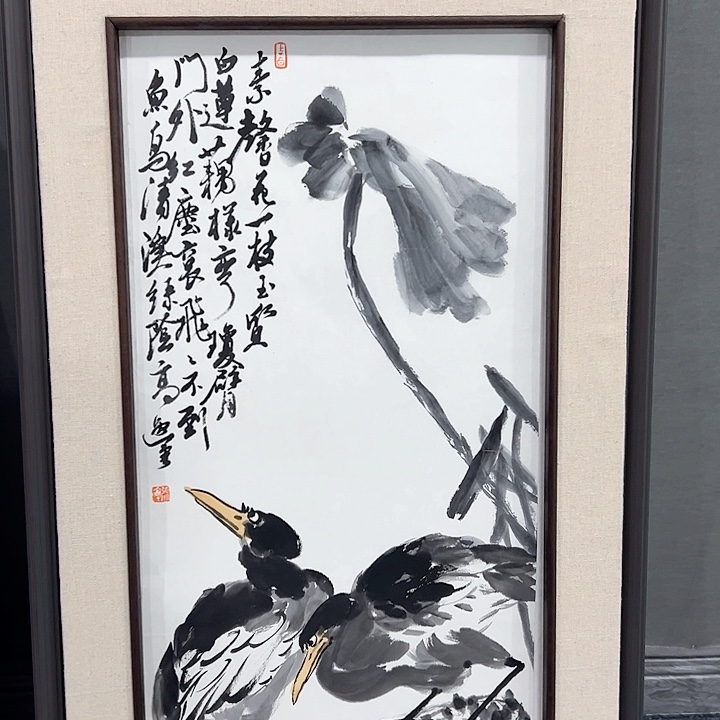 素馨花一枝玉質
白蓮藕樣彎瓊臂
門外紅塵衮飛〻不到
魚鳥清溪綠陰高